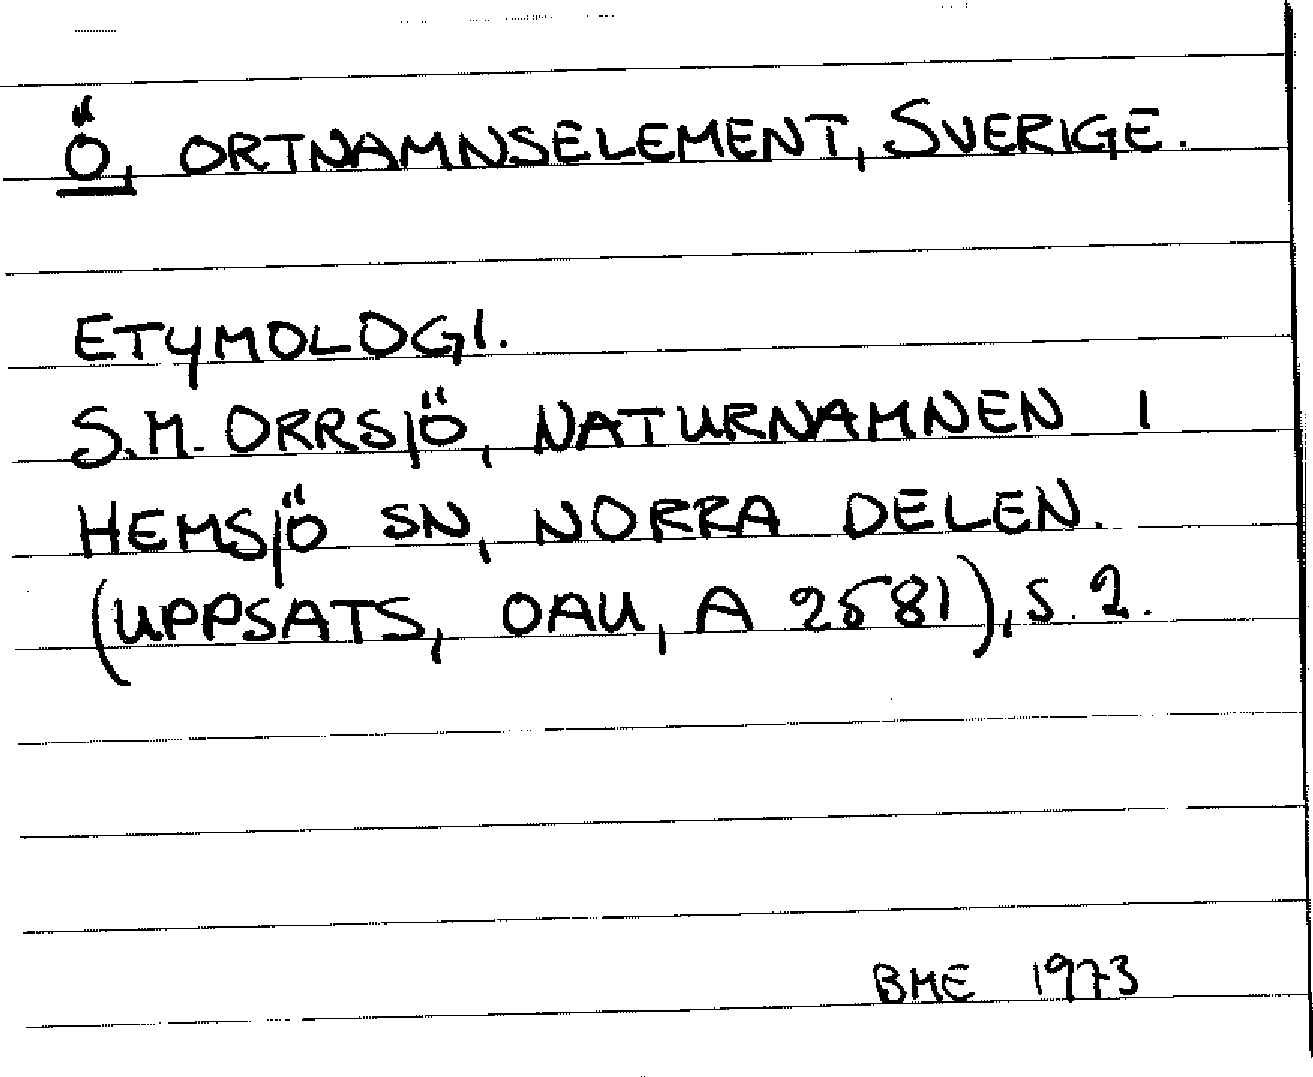 Ö, ORTNAMNSELEMENT, SVERIGE.
ETYMOLOGI.
S.M. ORRSJÖ, NATURNAMNEN I
HEMSJÖ SN, NORRA DELEN.
(UPPSATS, OAU, A 2581), S. 2.
BME 1973